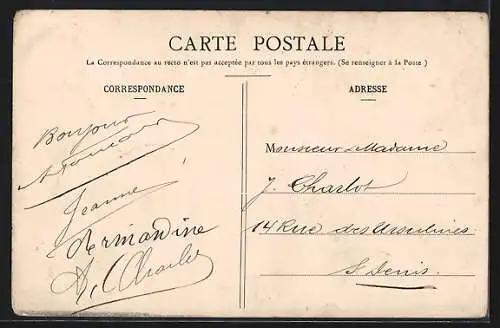 CARTE POSTALE
La Correspondance au recto n'est pas acceptée par tous les pays étrangers. (Se renseigner à la Poste)
CORRESPONDANCE
Bonjour
Jeanne
Hermandine
Charlot
ADRESSE
Monsieur Madame
J. Charlot
14 Rue des Ursulines
St Denis.